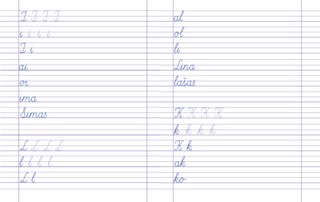 I I I I
i i i i
I i
ai
oi
ima
Simas
L L L L
l l l l
L l
al
ol
li
Lina
lašas
K K K K
k k k k
K k
ak
ko